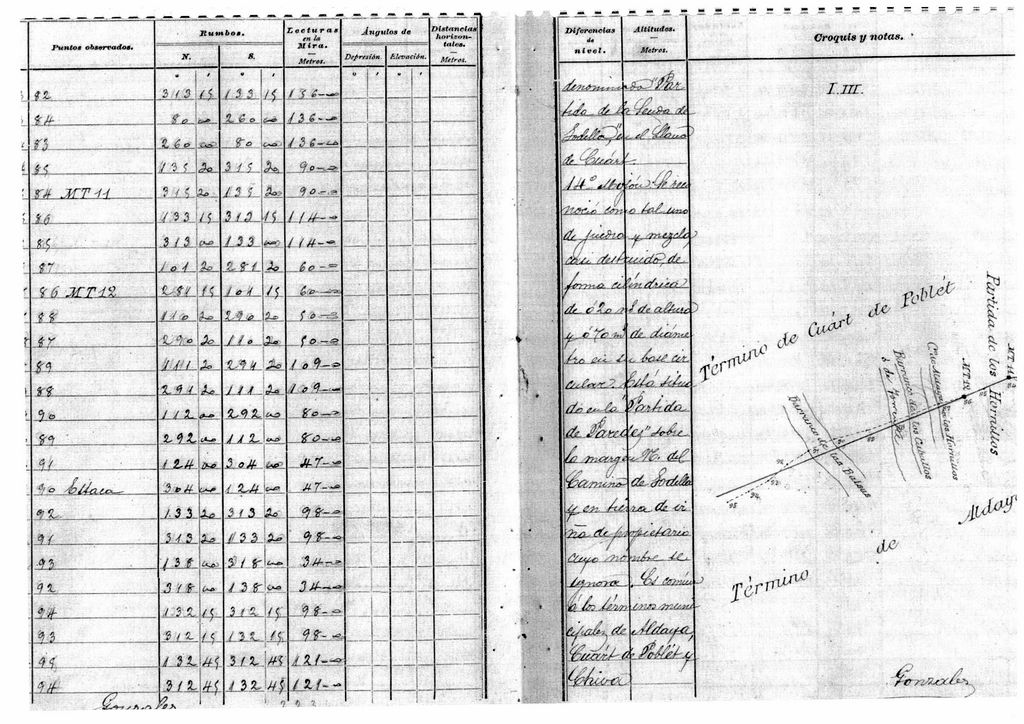 Puntos observados. Rumbos. Lecturas en la Mira. Ángulos de Distancias horizontales.
N. S. Metros. Depresión. Elevación. Metros.
82 313 15 133 15 136-00
84 80 00 260 00 136-00
83 260 00 80 00 136-00
85 135 20 315 20 90-00
84 MT 11 315 20 135 20 90-00
86 133 15 313 15 114-00
85 313 00 133 00 114-00
87 101 20 281 20 60-00
86 MT 12 281 15 101 15 60-00
88 110 20 290 20 50-00
87 290 20 110 20 50-00
89 111 20 291 20 109-00
88 291 20 111 20 109-00
90 112 00 292 00 80-00
89 292 00 112 00 80-00
91 124 00 304 00 47-00
90 Estaca 304 00 124 00 47-00
92 133 20 313 20 98-00
91 313 20 133 20 98-00
93 138 00 318 00 34-00
92 318 00 138 00 34-00
94 132 15 312 15 98-00
93 312 15 132 15 98-00
95 132 45 312 45 121-00
94 312 45 132 45 121-00
Gonzales
Diferencias de nivel. Altitudes. Metros. Croquis y notas.
denominada "Par
tida de la Senda de
Todella", en el Llano
de Cuart
14º Mojón. Se reco
noció como tal uno
de piedra y mezcla
casi destruido, de
forma cilíndrica
de 0'20 m! de altura
y 0'70 m! de diáme
tro en su base cir
cular. Está situa
do en la "Partida
de Paredes" sobre
la margen N. del
Camino de Todella
y en tierra de vi
ña de propietario
cuyo nombre se
ignora. Es común
á los términos muni
cipales de Aldaya,
Cuart de Poblét y
Chiva
I.III.
Término de Cuárt de Poblét
Partida de los Hornillos
MT 11
MT 12
Barranco de los Caballos
Barranco de las Balsas
Término de Aldaya
Gonzales